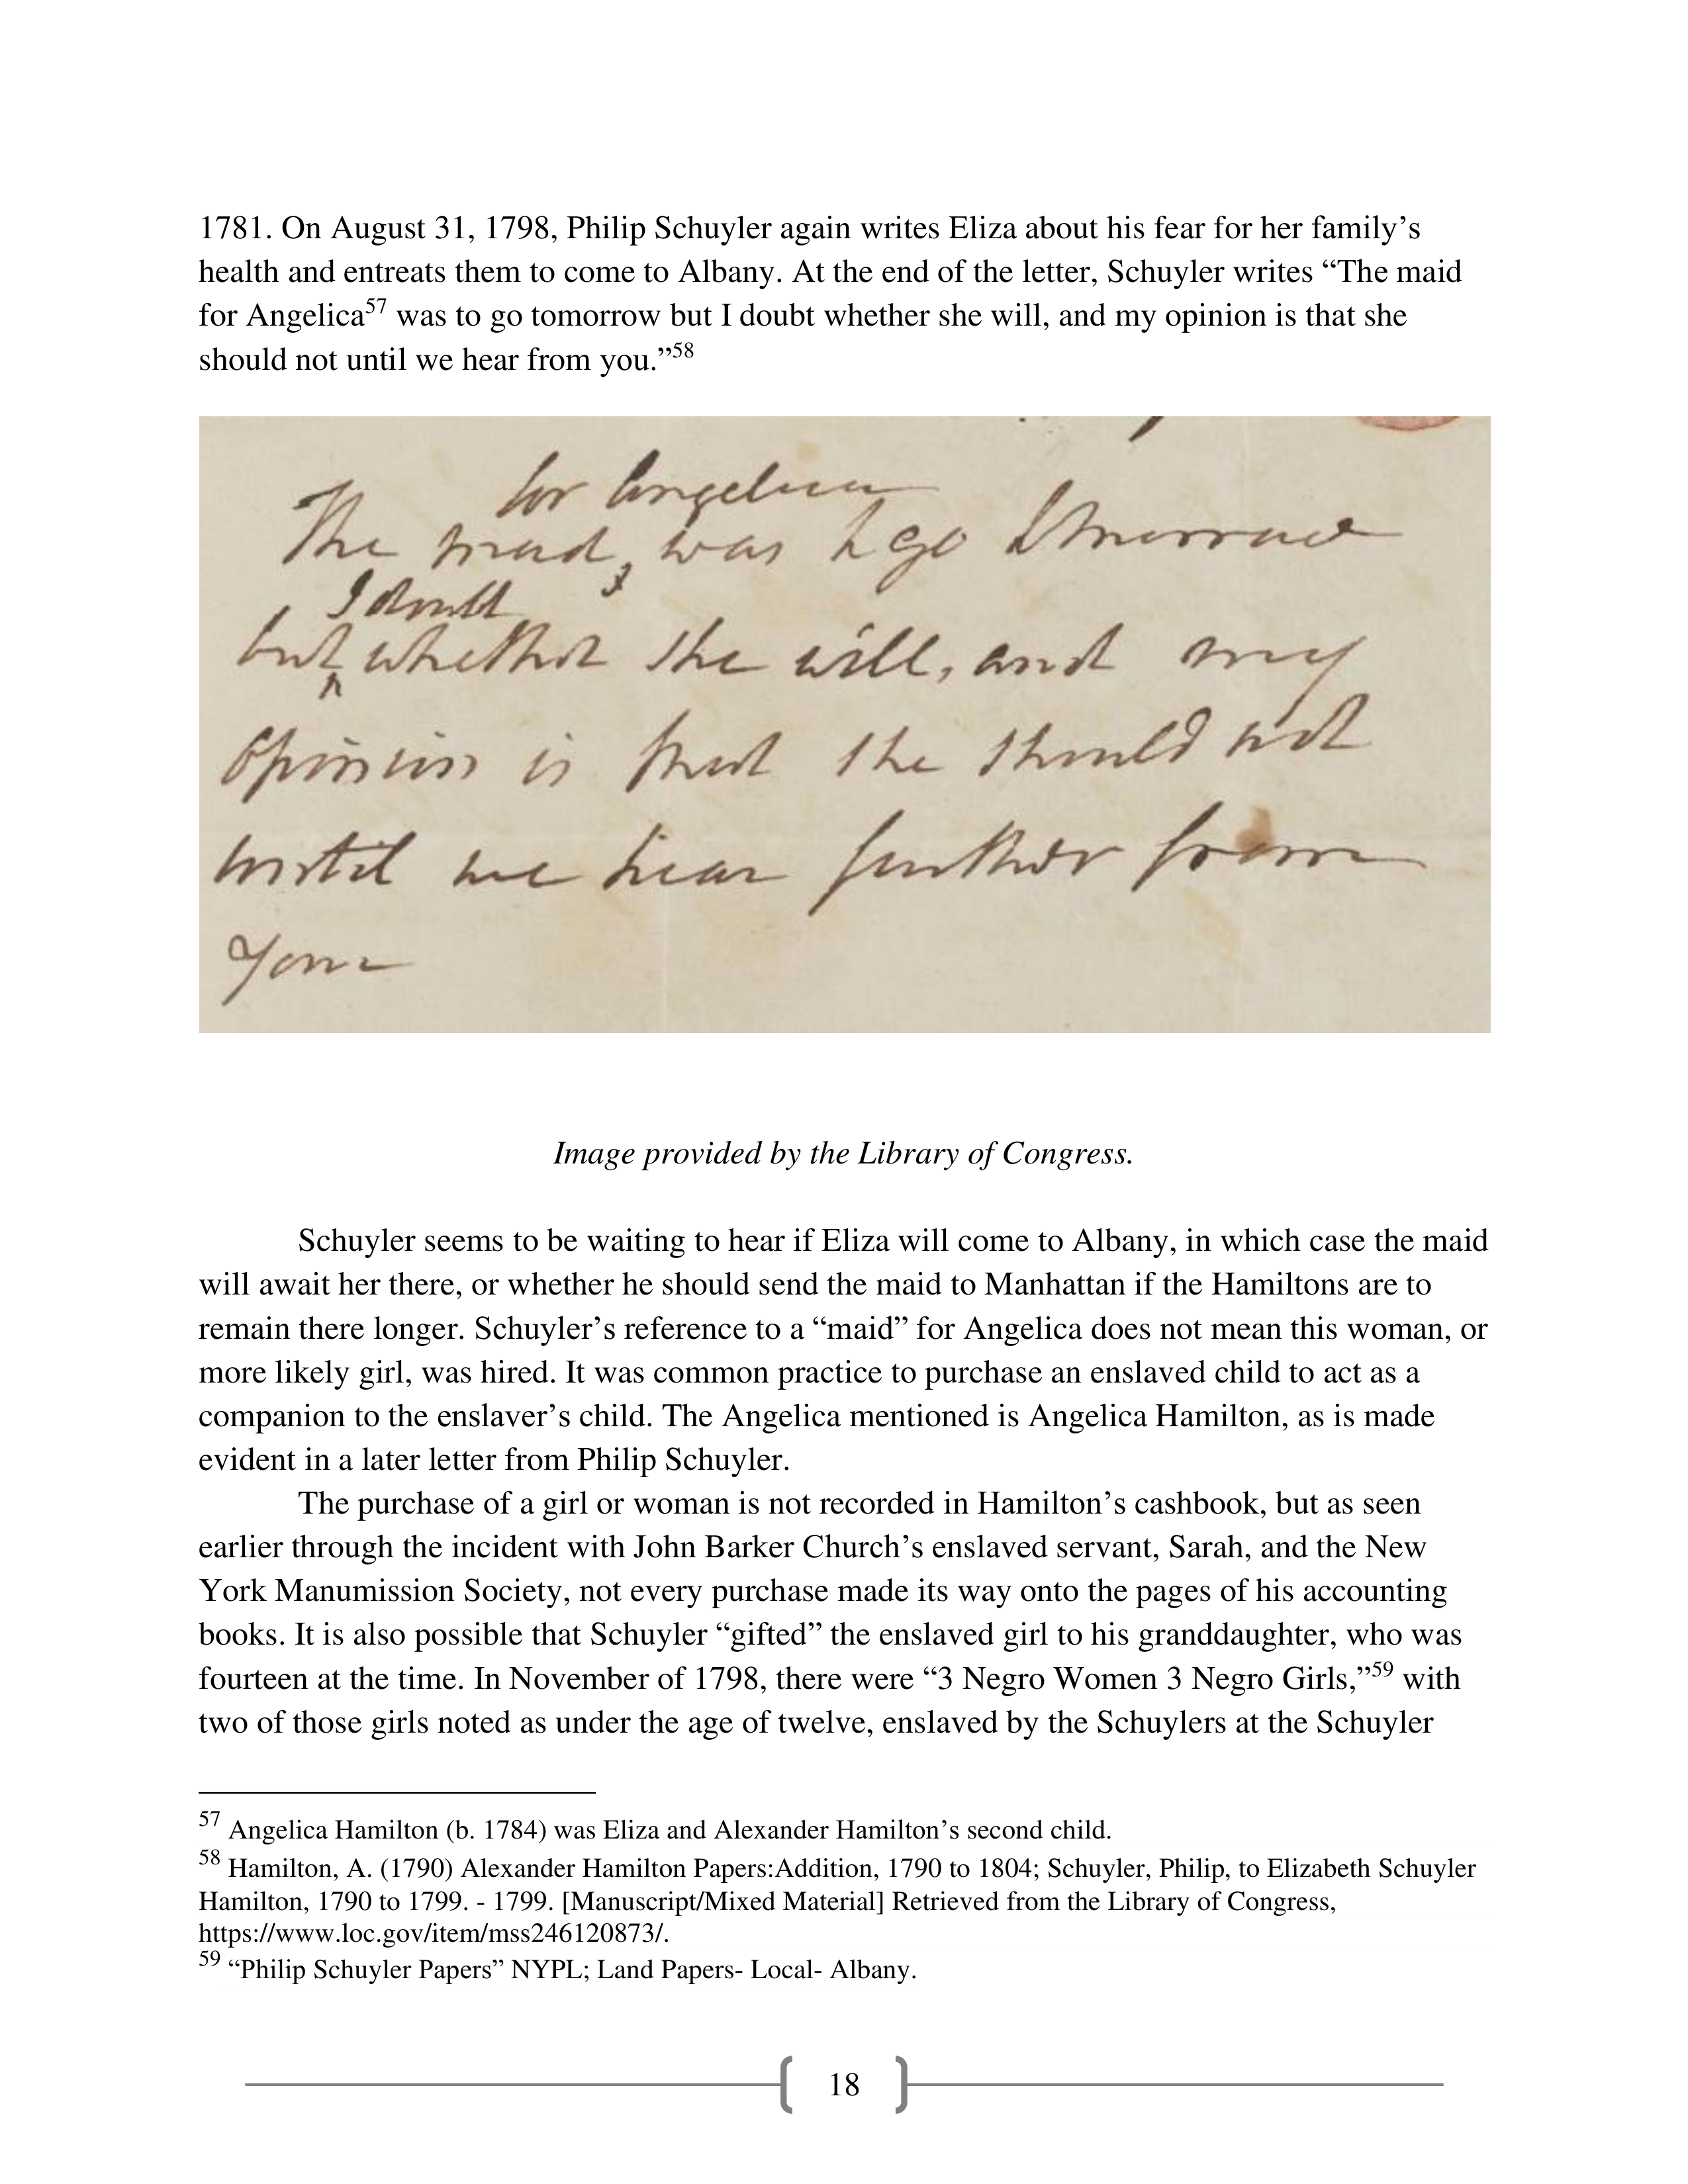 1781. On August 31, 1798, Philip Schuyler again writes Eliza about his fear for her family’s
health and entreats them to come to Albany. At the end of the letter, Schuyler writes “The maid
for Angelica57 was to go tomorrow but I doubt whether she will, and my opinion is that she
should not until we hear from you.”58
for Angelica
The maid, was to go tomorrow
I doubt
but whether she will, and my
opinion is that she should not
until we hear further from
you
Image provided by the Library of Congress.
Schuyler seems to be waiting to hear if Eliza will come to Albany, in which case the maid
will await her there, or whether he should send the maid to Manhattan if the Hamiltons are to
remain there longer. Schuyler’s reference to a “maid” for Angelica does not mean this woman, or
more likely girl, was hired. It was common practice to purchase an enslaved child to act as a
companion to the enslaver’s child. The Angelica mentioned is Angelica Hamilton, as is made
evident in a later letter from Philip Schuyler.
The purchase of a girl or woman is not recorded in Hamilton’s cashbook, but as seen
earlier through the incident with John Barker Church’s enslaved servant, Sarah, and the New
York Manumission Society, not every purchase made its way onto the pages of his accounting
books. It is also possible that Schuyler “gifted” the enslaved girl to his granddaughter, who was
fourteen at the time. In November of 1798, there were “3 Negro Women 3 Negro Girls,”59 with
two of those girls noted as under the age of twelve, enslaved by the Schuylers at the Schuyler
57 Angelica Hamilton (b. 1784) was Eliza and Alexander Hamilton’s second child.
58 Hamilton, A. (1790) Alexander Hamilton Papers:Addition, 1790 to 1804; Schuyler, Philip, to Elizabeth Schuyler
Hamilton, 1790 to 1799. - 1799. [Manuscript/Mixed Material] Retrieved from the Library of Congress,
https://www.loc.gov/item/mss246120873/.
59 “Philip Schuyler Papers” NYPL; Land Papers- Local- Albany.
18